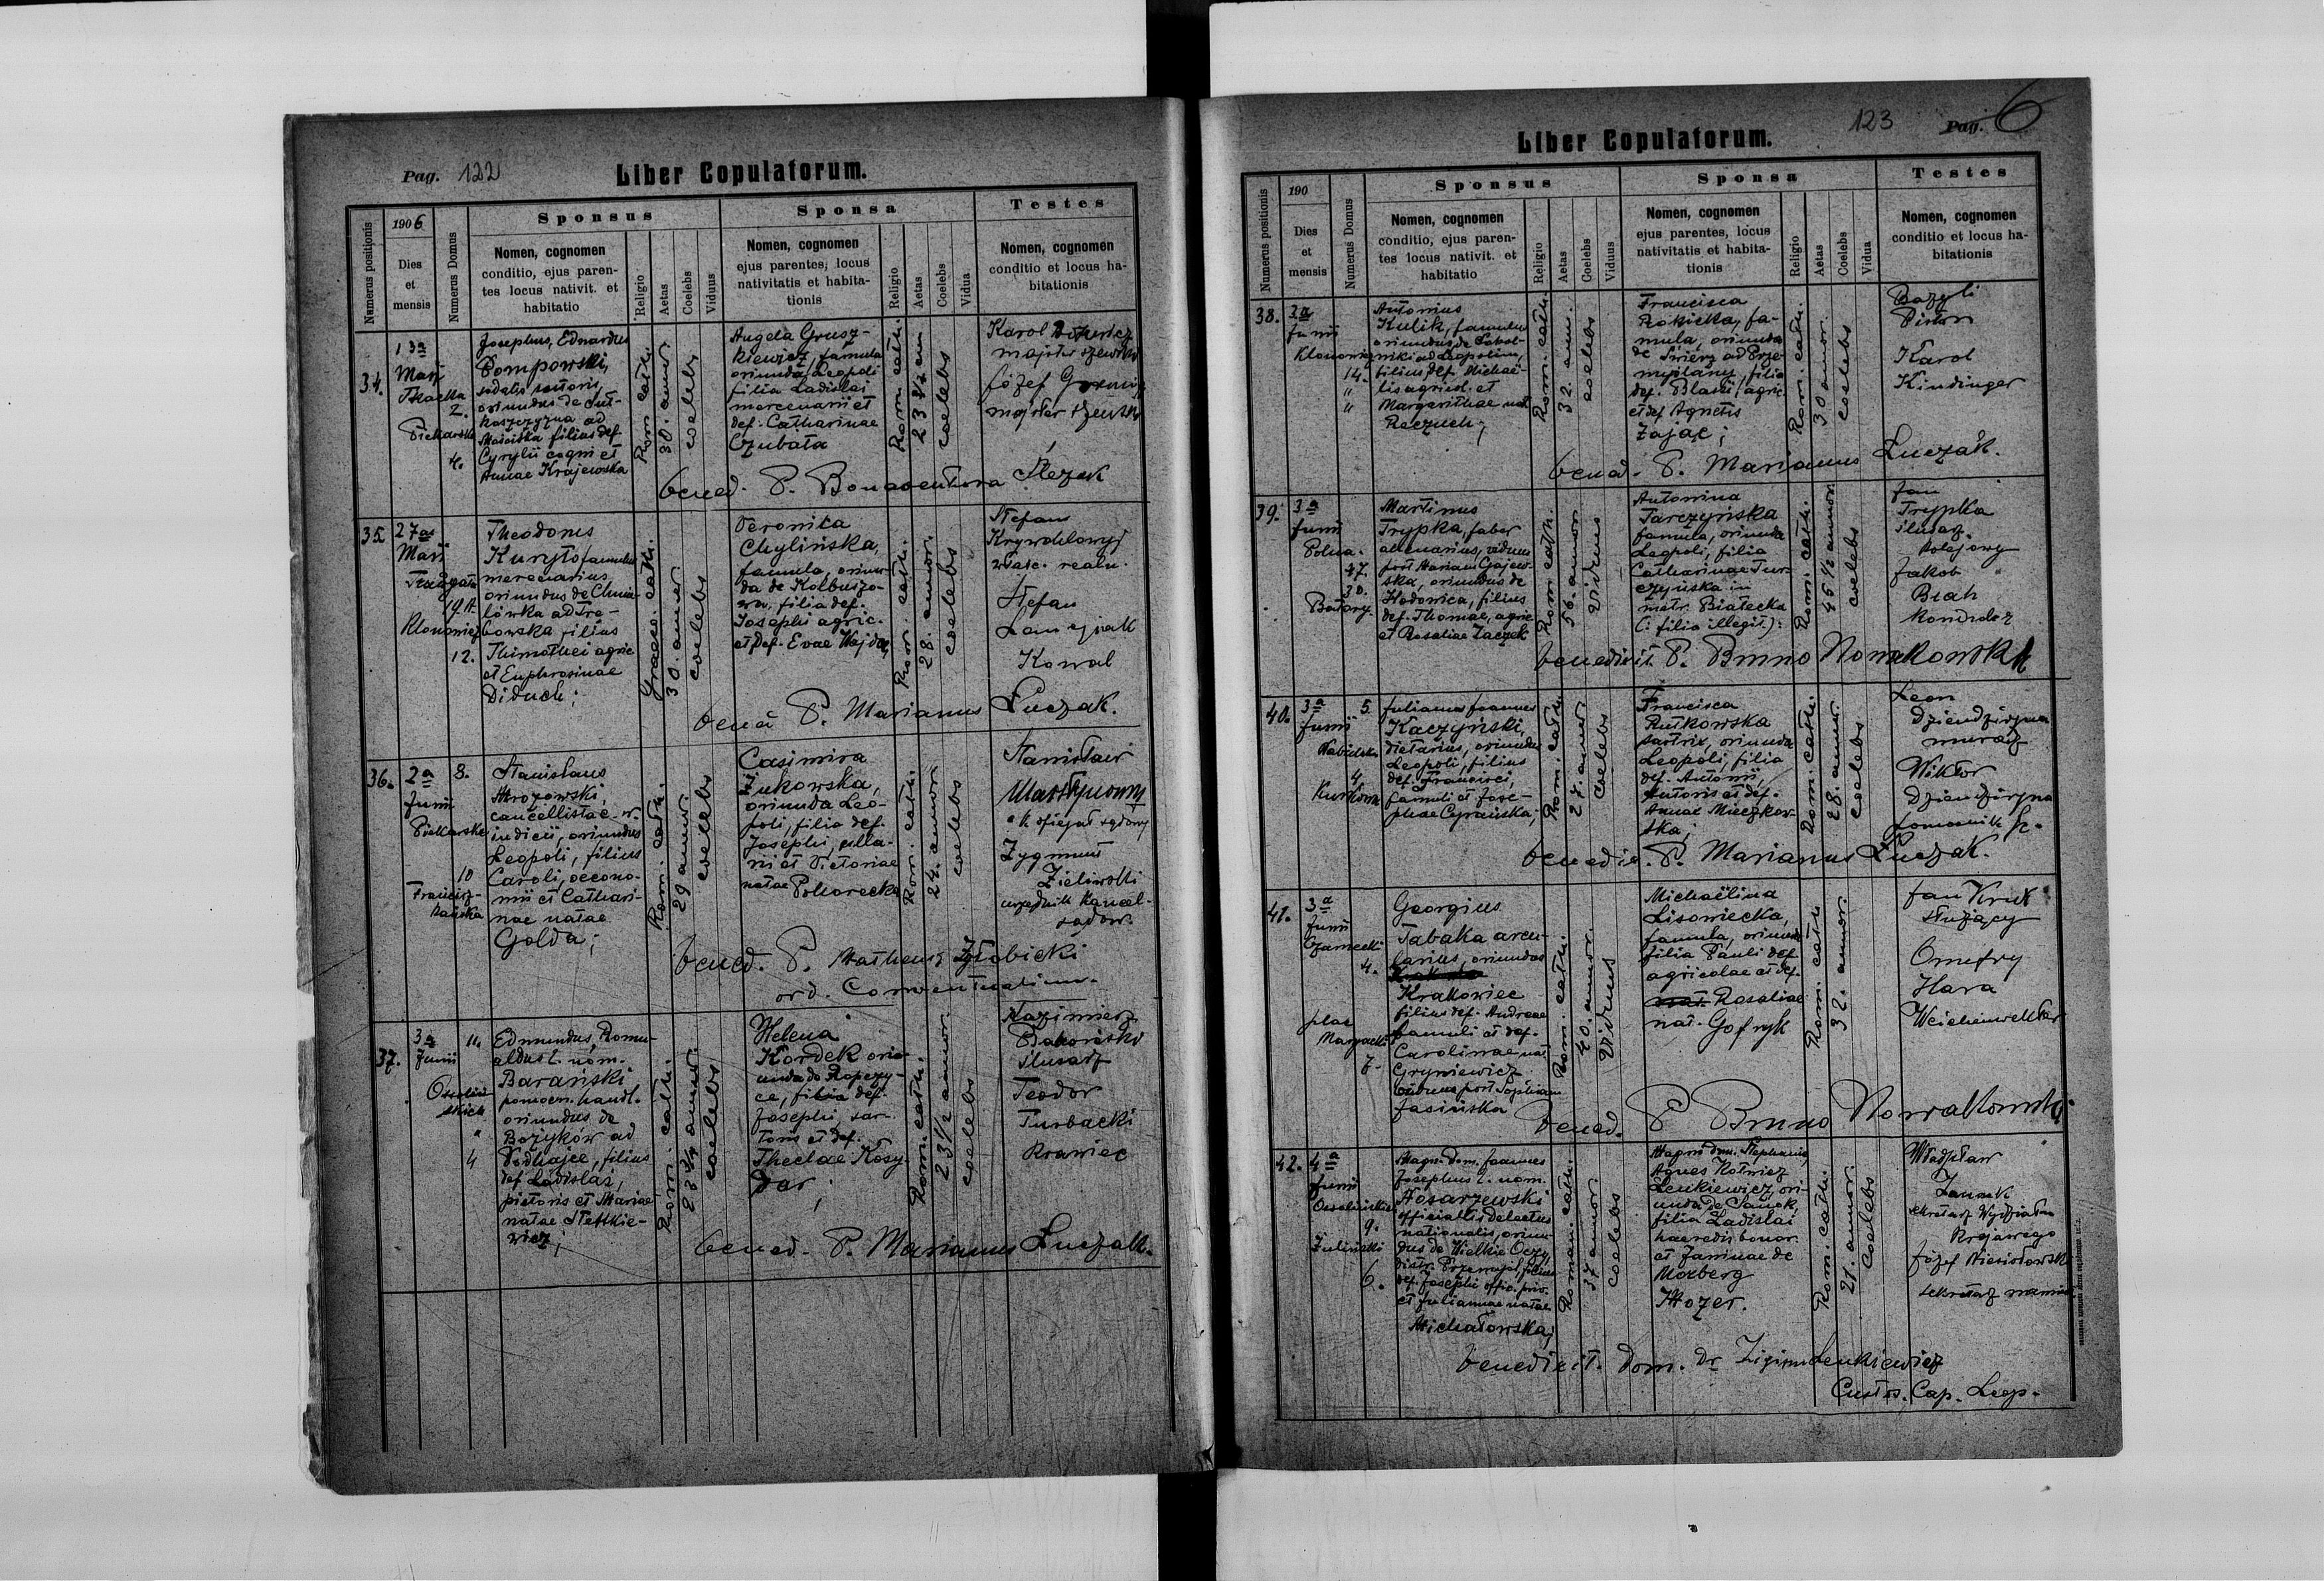 Pag. 122
Liber Copulatorum.
Numerus positionis
1906
Dies
et
mensis
Numerus Domus
Sponsus
Nomen, cognomen
conditio, ejus paren-
tes locus nativit. et
habitatio
Religio
Aetas
Coelebs
Viduus
Sponsa
Nomen, cognomen
ejus parentes, locus
nativitatis et habita-
tionis
Religio
Aetas
Coelebs
Vidua
Testes
Nomen, cognomen
conditio et locus ha-
bitationis
34.
13a
Maji
2.
Piekarska
4.
Josephus, Eduardus
Pompowski,
sodalis sutoris,
oriundus de
ad
Mościska filius def.
Cyrylii cogni et
Annae Krajewska
Rom. cath.
30. annor.
coelebs
Angela Grusz-
kiewicz, famula
oriunda Leopoli
filia Ladislai
mercenarii et
def. Catharinae
Czubata
Rom. cath.
coelebs
Karol
majster szewski
Józef
majster szewski
bened. P. Bonaventura Ślęzak
35.
27a
Maji
19.A.
Klonowicz
12.
Theodorus
Kuryło famulus
mercenarius
oriundus de Chmie-
lówka ad Tre-
bowska filius
Thimothei agric.
et Euphrosinae
Diduch;
Graeco. cath.
30. annor.
coelebs
Veronica
Chylińska,
famula, oriun-
da de Kolbuszo-
wa, filia def.
Josephi agric.
et def. Evae Wajda,
Rom. cath.
28. annor.
coelebs
Stefan
właśc. realn.
Stefan
Kowal
bened P. Marianus Łuczak.
36.
2a
Junii
Piekarska
8.
10
Francisz-
kańska
Stanislaus
Mrozowski,
cancellistae
iudicii, oriundus
Leopoli, filius
Caroli, oecono-
mii et Cathari-
nae natae
Golda;
Rom. cath.
29 annor.
coelebs
Casimira
Żukowska,
oriunda Leo-
poli, filia def.
Josephi,
et Victoriae
natae Pohorecka
Rom. cath.
24. annor.
coelebs
Stanisław
Martynowicz
Zygmunt
Zieliński
urzędnik kancel-
sądow.
bened. P. Matheus Żłobicki
ord. Conventualium.
37.
3a
Junii
11.
Ossoliń-
skich
"
4
Edmundus, Romu-
aldus 2. nom.
Barański
pomocn. handl.
oriundus de
Bożyków ad
Podhajce, filius
def. Ladislai,
pictoris et Mariae
natae
Rom. cath.
23 3/4 annor.
coelebs
Helena
Kordek oriu-
unda de Ropczy-
ce, filia def.
Josephi, sar-
toris et def.
Theclae Kosy-
dar;
Rom. cath.
23 1/2 annor.
coelebs
Kazimierz
ślusarz
Teodor
Turbacki
krawiec
bened. P. Marianus Łuczak.
123
Pag. 6
Liber Copulatorum.
Numerus positionis
190
Dies
et
mensis
Numerus Domus
Sponsus
Nomen, cognomen
conditio, ejus paren-
tes locus nativit. et
habitatio
Religio
Aetas
Coelebs
Viduus
Sponsa
Nomen, cognomen
ejus parentes, locus
nativitatis et habita-
tionis
Religio
Aetas
Coelebs
Vidua
Testes
Nomen, cognomen
conditio et locus ha-
bitationis
38.
3a
Junii
Klonowicz
14.
"
"
Antonius
Kulik, famulus
oriundus de
ad Leopolim,
filius def. Michaë-
lis agricol. et
Margarithae nat.
Raczuch;
Rom. cath.
32. ann.
coelebs
Francisca
Rokicka, fa-
mula, oriunda
de Świerz ad Prze-
myślany, filia
def. Blasii, agric.
et def. Agnetis
Zając;
Rom. cath.
30 annor.
coelebs
Bazyli
Karol
Kindinger
bened. P. Marianus Łuczak.
39.
3a
Junii
Polna.
47.
30.
Batory.
Martinus
Trypka, faber
viduus
post Mariam Gajew-
ska, oriundus de
Hodowica, filius
def. Thomae, agric.
et Rosaliae Zaczek
Rom. cath.
56. annor.
viduus
Antonina
Tarczyńska
famula, oriunda
Leopoli, filia
Catharinae Tur-
czyńska in
matr. Białecka
(: filia illegit.):
Rom. cath.
45 1/2 annor.
coelebs
Jan
Trypka
ślusarz
kolejowy
Jakob
Biah
benedixit P. Bruno Nowakowski
40.
3a
Junii
5.
4
Kurkowa
Julianus Joannes
Kaczyński,
dietarius, oriundus
Leopoli, filius
def. Francisci,
famuli et Jose-
phae Cyprańska;
Rom. cath.
27. annor.
coelebs
Francisca
Rutkowska
sartrix, oriunda
Leopoli, filia
def. Antonii,
sutoris et def.
Annae Mieczkow-
ska;
Rom. cath.
28. annor.
coelebs
Leon
murarz
Wiktor
benedix. P. Marianus Łuczak.
41.
3a
Junii
Czarnecki
4.
plac
Maryacki
7.
Georgius
Tabaka arcu-
larius, oriundus
Krakowiec
filius def. Andreae
famuli et def.
Carolinae nat.
Gryniewicz
viduus post Sophiam
Jasińska
Rom. cath.
40. annor.
viduus
Michaëlina
Lisowiecka,
famula, oriunda
filia Pauli def.
agricolae et def.
Rosaliae
nat. Gofryk
Rom. cath.
32. annor.
Jan Kruk
służący
Omefry
Hara
bened. P Bruno Nowakowski
42.
4a
Junii
Ossolińskich
9.
Zuliński
6.
Magn. Dom. Joannes
Josephus 2. nom.
Kosarzewski
officialis delectus
nationalis, oriun-
dus de Wielkie Oczy,
distr. Przemyśl, filius
def. Josephi offic. priv.
et Juliannae natae
Michałowska;
Roman. cath.
37 annor.
coelebs
Magni Dom. Stephania,
Agnes Kotwicz
Lenkiewicz, ori-
unda de Sanok,
filia Ladislai
haeredis bonor.
et Janinae de
Morberg
Mozer.
Rom. cath.
21. annor.
coelebs
Władysław
sekretarz Wydziału
Krajowego
Józef
sekretarz
benedixit. Dom. Dr Zigism. Lenkiewicz
Custos. Cap. Leop.